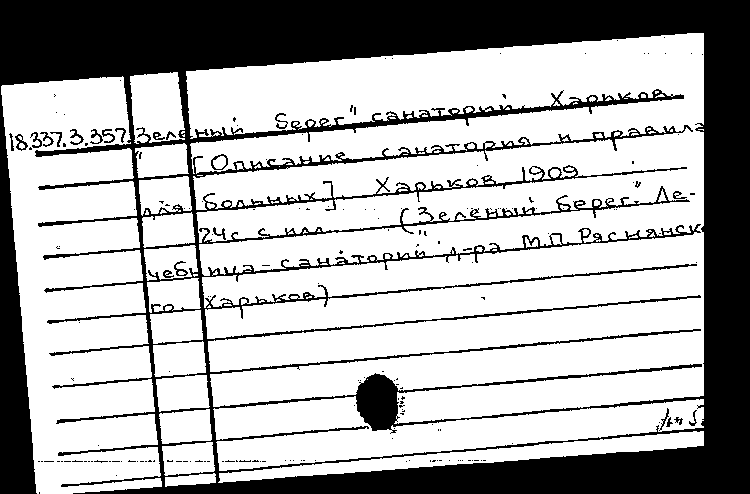 18.337.3.357. Зеленый берег", санаторий. Харьков.
" [Описание санатория и правила
для больных]. Харьков, 1909
24с с илл. (Зеленый берег." Ле-
чебница-санаторий" д-ра М.П. Ряснянско
го. Харьков)